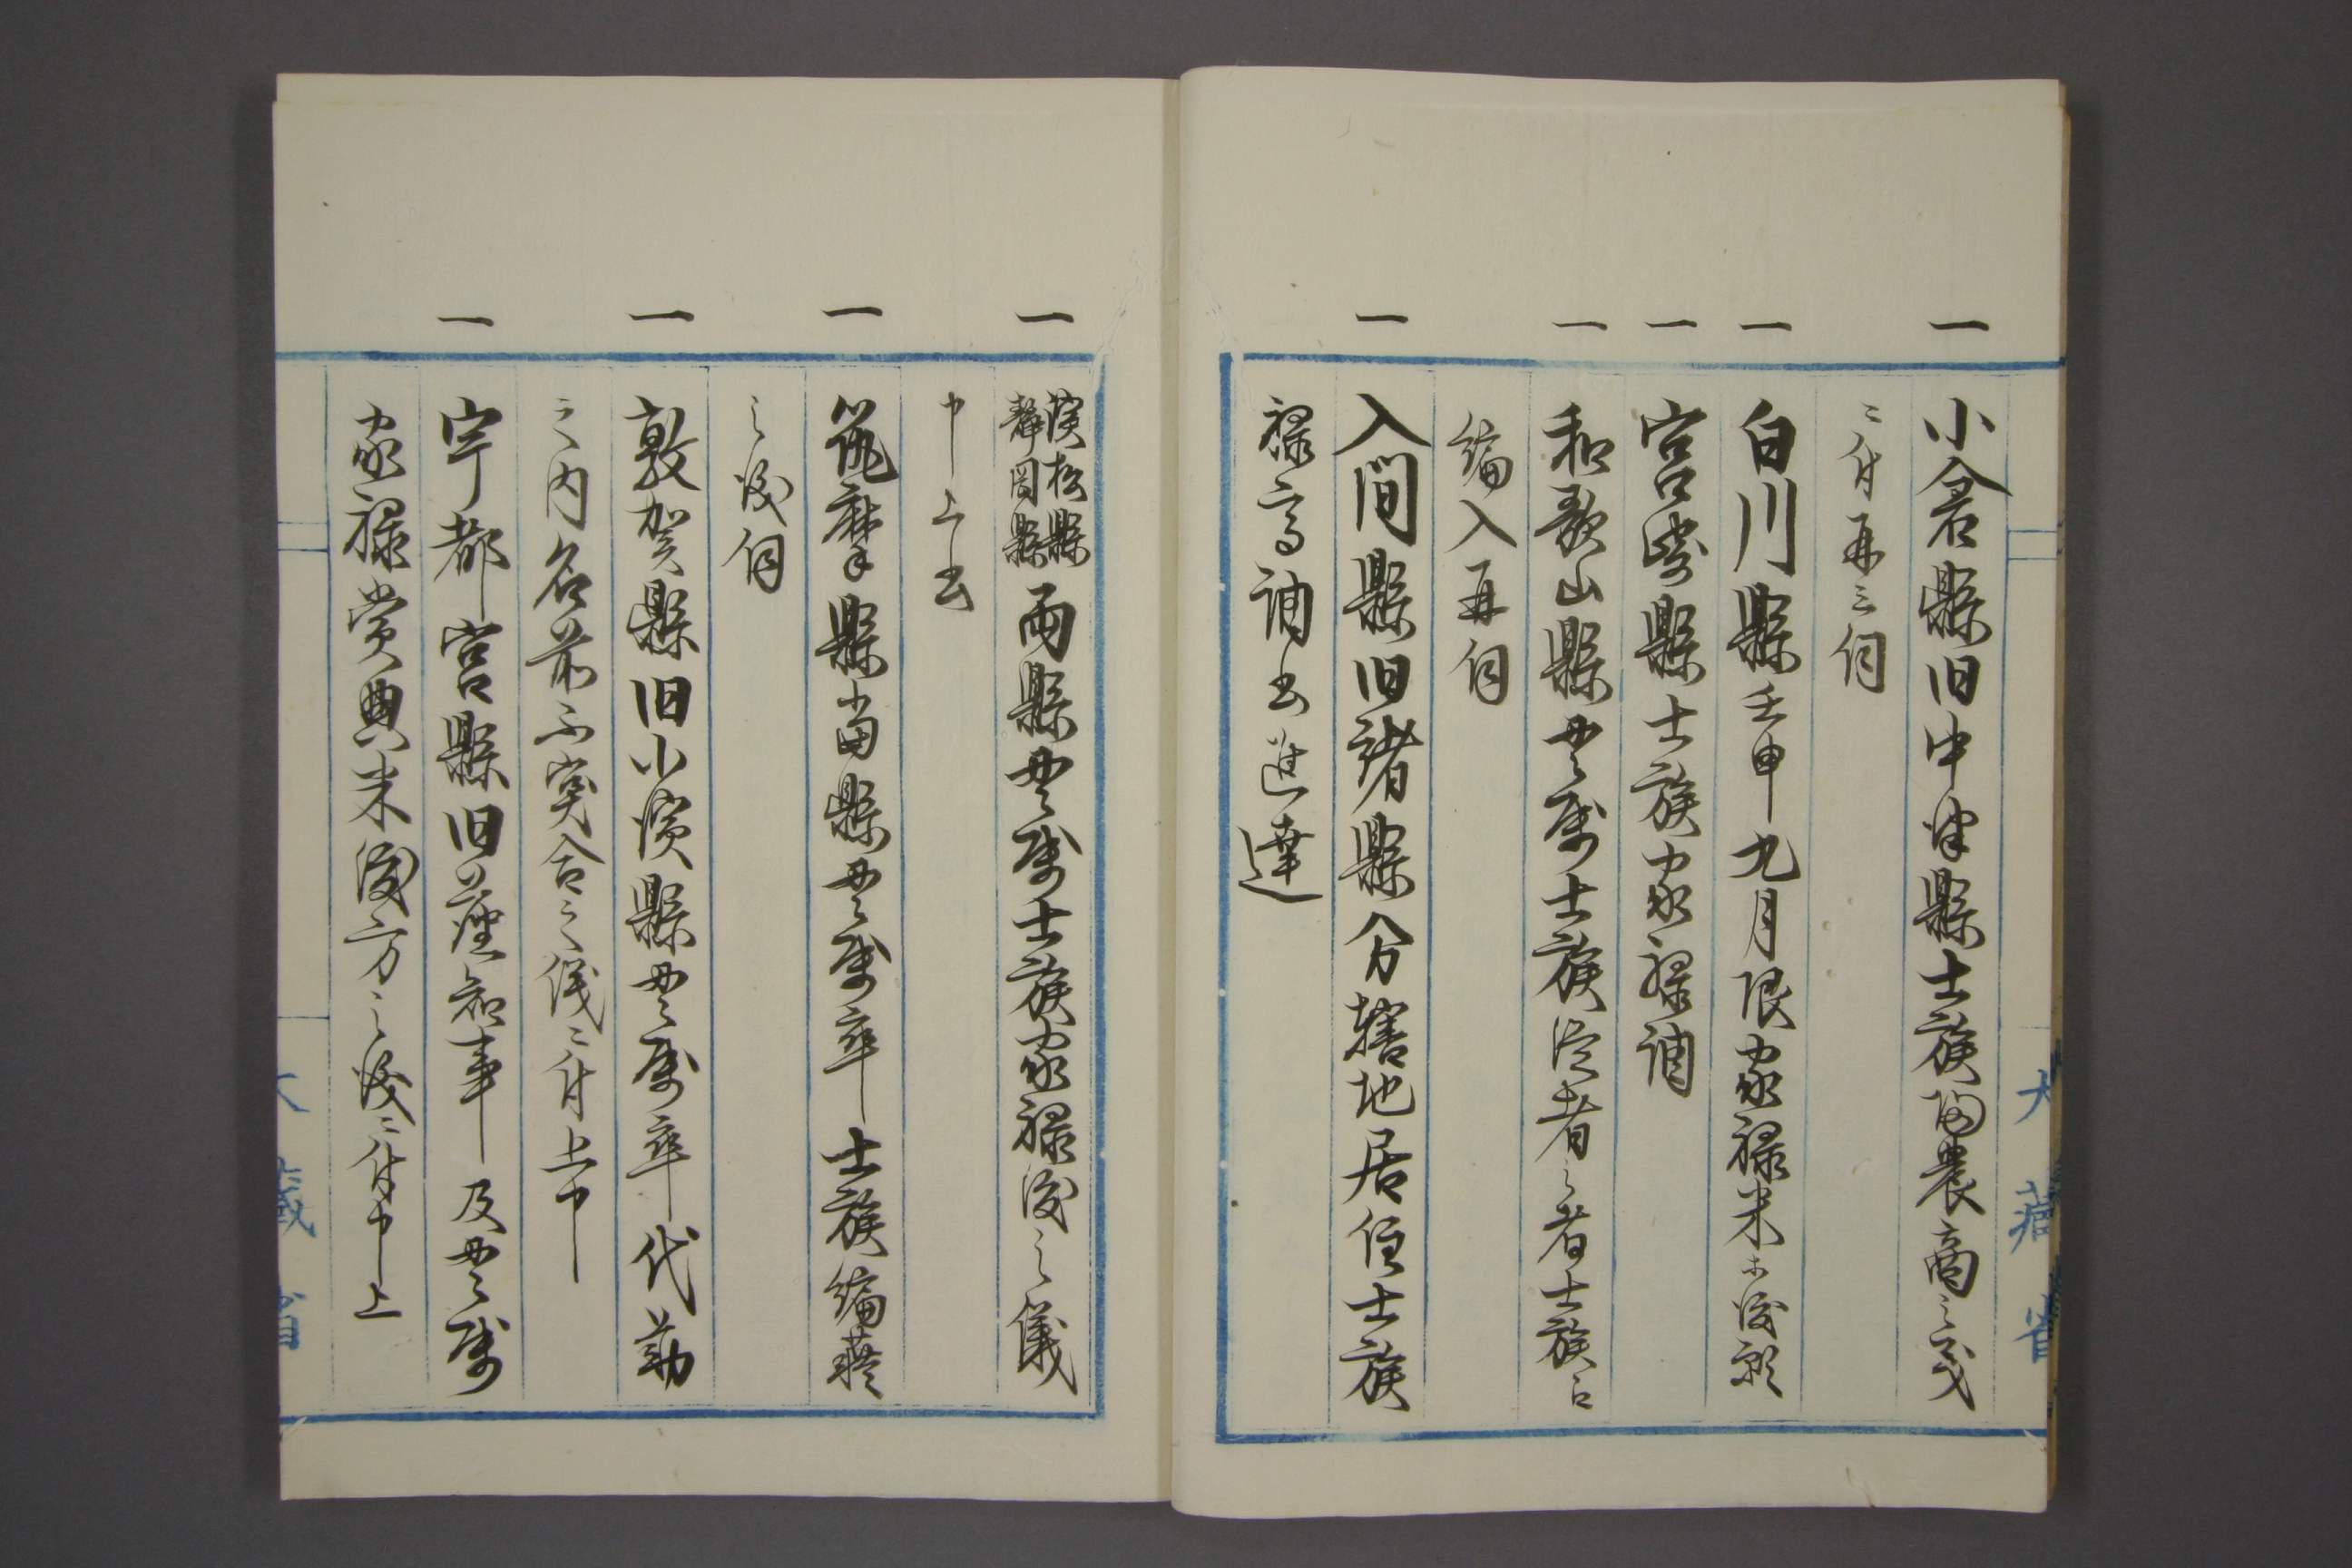 一 小倉縣旧中津縣士族帰農商之義
ニ付再三伺
一 白川縣壬申九月限家禄米不渡願
一 宮崎縣士族家禄調
一 和歌山縣貫属士族従者之者士族江
編入再伺
一 入間縣旧諸縣分轄地居住士族
禄高調書進達
大藏省
一 濱松縣静岡縣両縣貫属士族家禄渡之儀
申上書
一 筑摩縣當縣貫属卒士族編籍
之儀伺
一 敦賀縣旧小濱縣貫属卒代勤
之内名前不突合之儀ニ付上申
一 宇都宮縣旧藩知事及貫属
家禄賞典米渡方之儀ニ付申上
大藏省